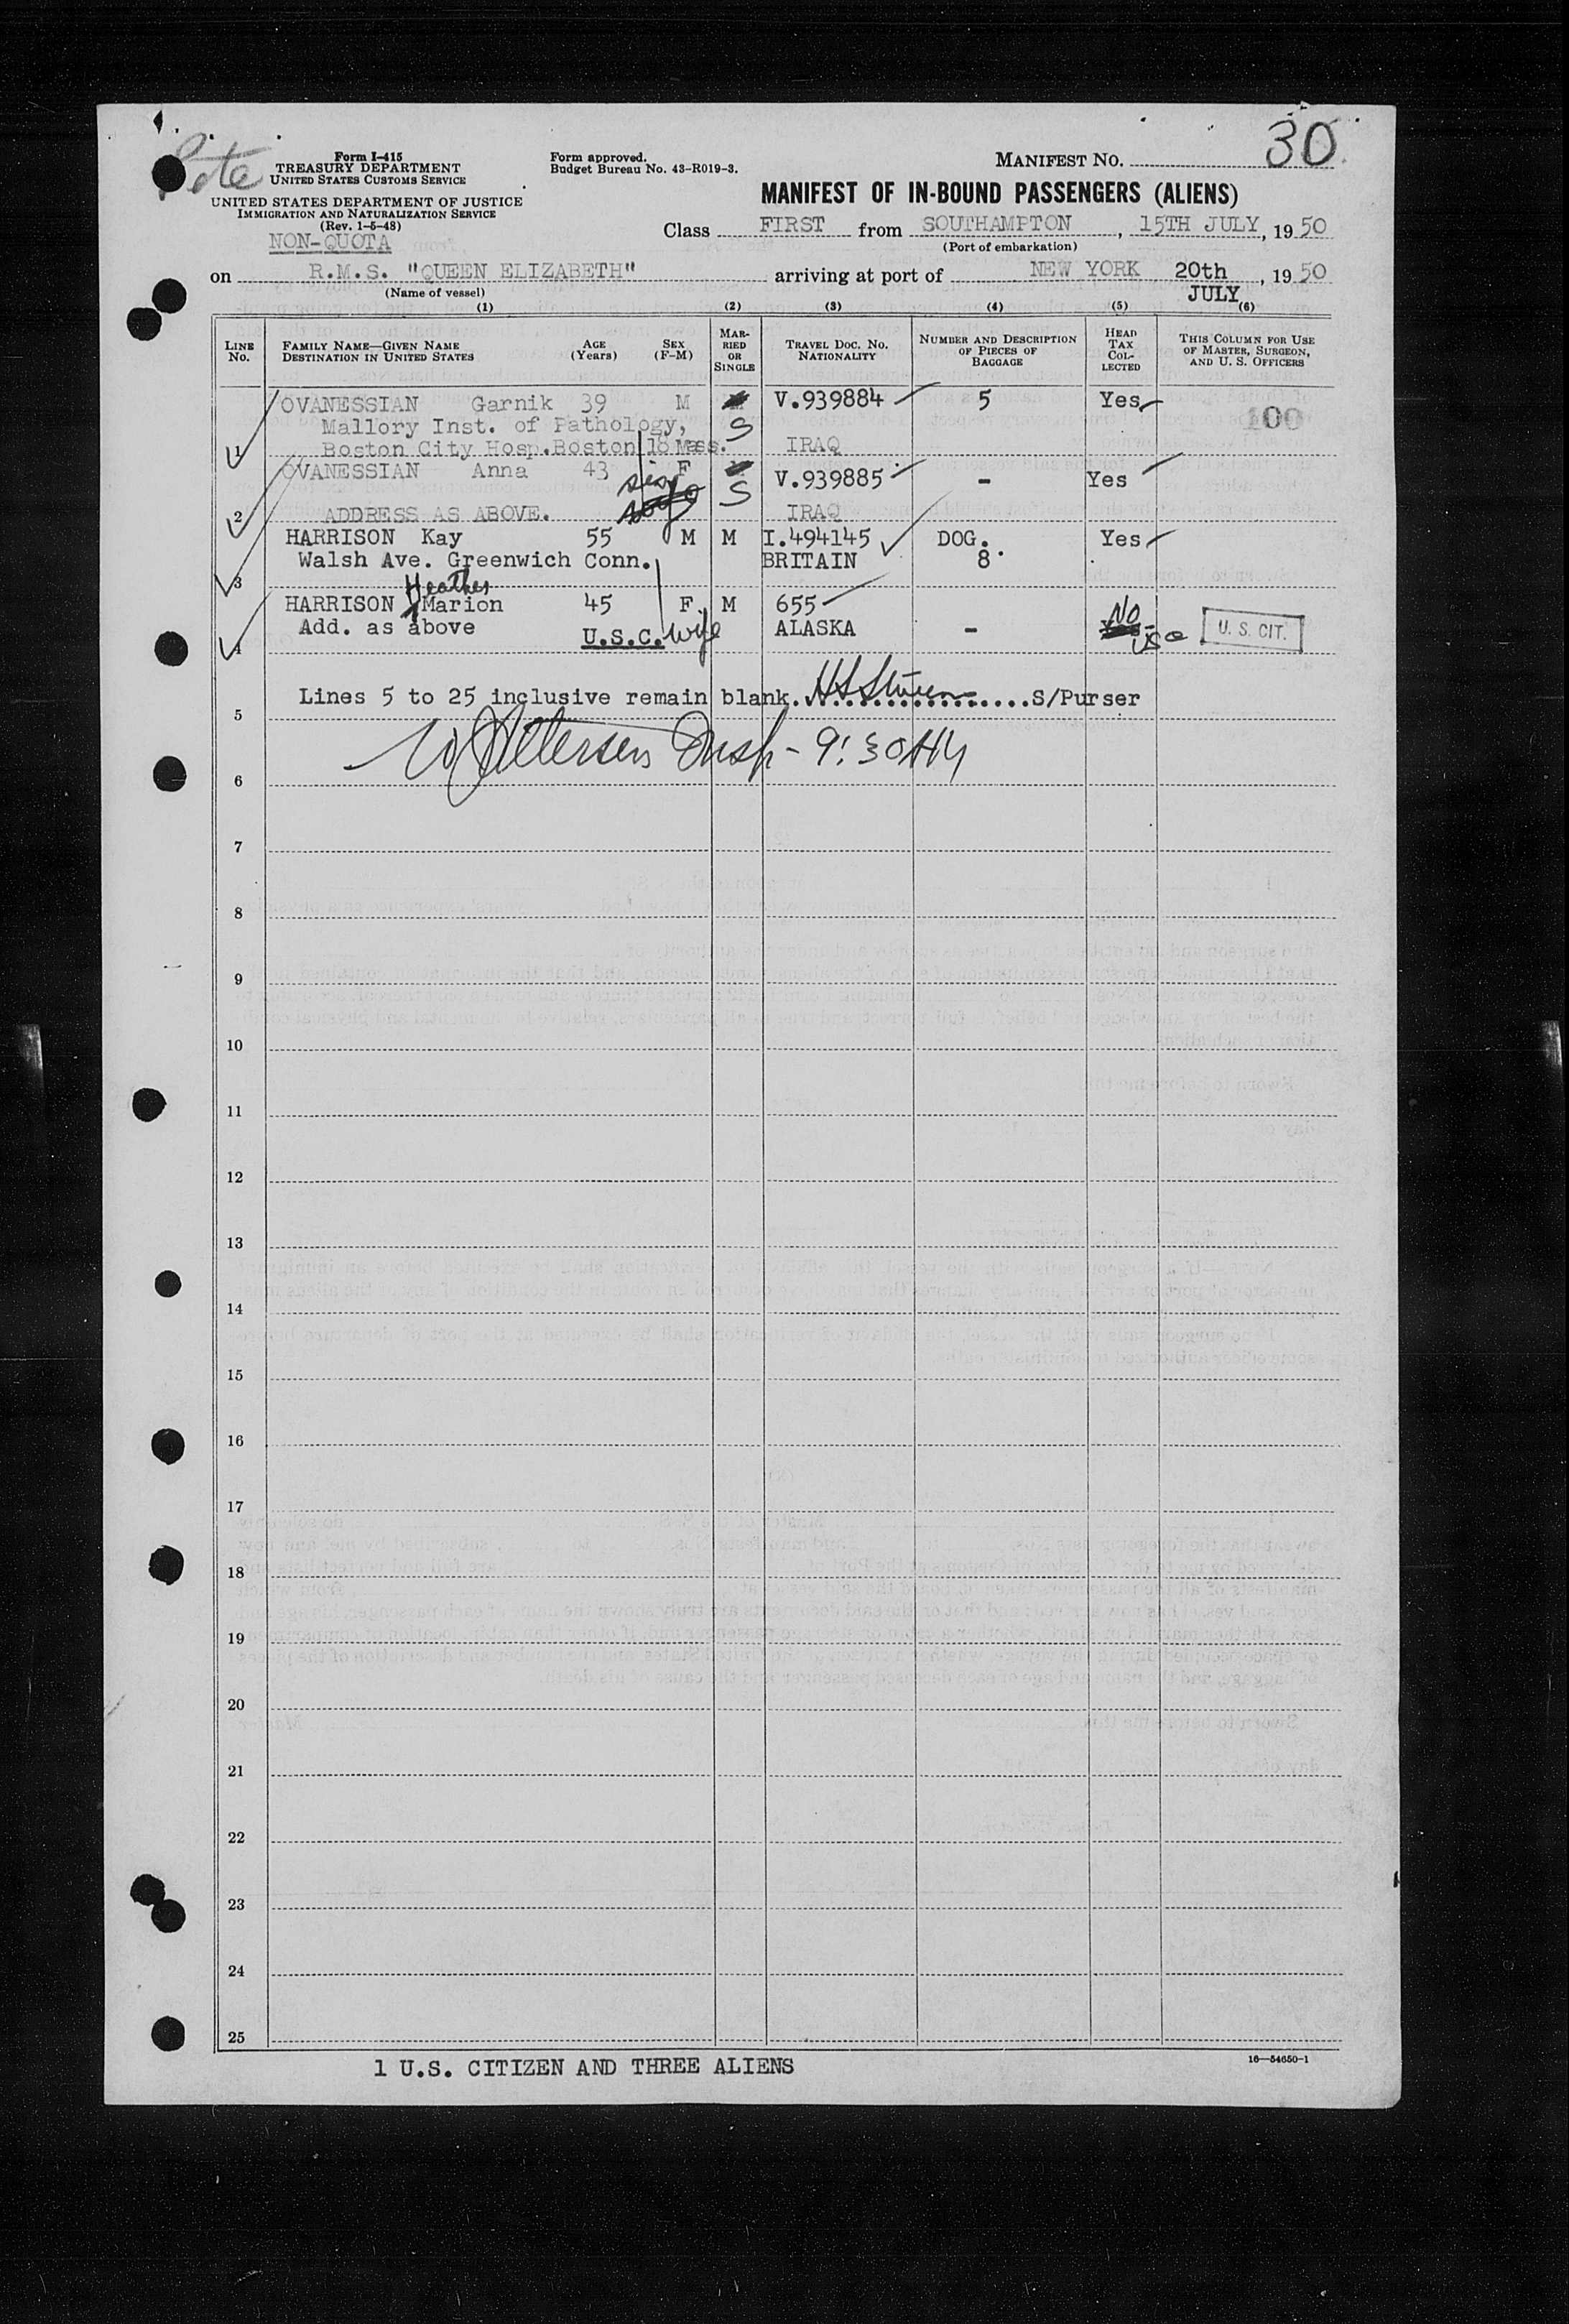 30
Form I-415
TREASURY DEPARTMENT
UNITED STATES CUSTOMS SERVICE
UNITED STATES DEPARTMENT OF JUSTICE
IMMIGRATION AND NATURALIZATION SERVICE
(Rev. 1-5-48)
NON-QUOTA
Form approved.
Budget Bureau No. 43-R019-3.
MANIFEST NO.
MANIFEST OF IN-BOUND PASSENGERS (ALIENS)
Class FIRST from SOUTHAMPTON, 15TH JULY, 1950
(Port of embarkation)
on R.M.S. "QUEEN ELIZABETH" arriving at port of NEW YORK 20th JULY, 1950
(Name of vessel)
(1) (2) (3) (4) (5) (6)
LINE No. FAMILY NAME—GIVEN NAME DESTINATION IN UNITED STATES AGE (Years) SEX (F-M) MARRIED OR SINGLE TRAVEL DOC. NO. NATIONALITY NUMBER AND DESCRIPTION OF PIECES OF BAGGAGE HEAD TAX COLLECTED THIS COLUMN FOR USE OF MASTER, SURGEON, AND U. S. OFFICERS
OVANESSIAN Garnik 39 M S V.939884 5 Yes 100
Mallory Inst. of Pathology,
1 Boston City Hosp.Boston 18 Mass. IRAQ
OVANESSIAN Anna 43 F sis S V.939885 - Yes
2 ADDRESS AS ABOVE. IRAQ
HARRISON Kay 55 M M I.494145 DOG. Yes
Walsh Ave. Greenwich Conn. BRITAIN 8.
3
Heather
HARRISON Marion 45 F. M 655 No
4 Add. as above U.S.C. wife ALASKA - USC U. S. CIT.
Lines 5 to 25 inclusive remain blank. S/Purser
5
Insp - 9:30 AM
6
7
8
9
10
11
12
13
14
15
16
17
18
19
20
21
22
23
24
25
1 U.S. CITIZEN AND THREE ALIENS
16—54650-1